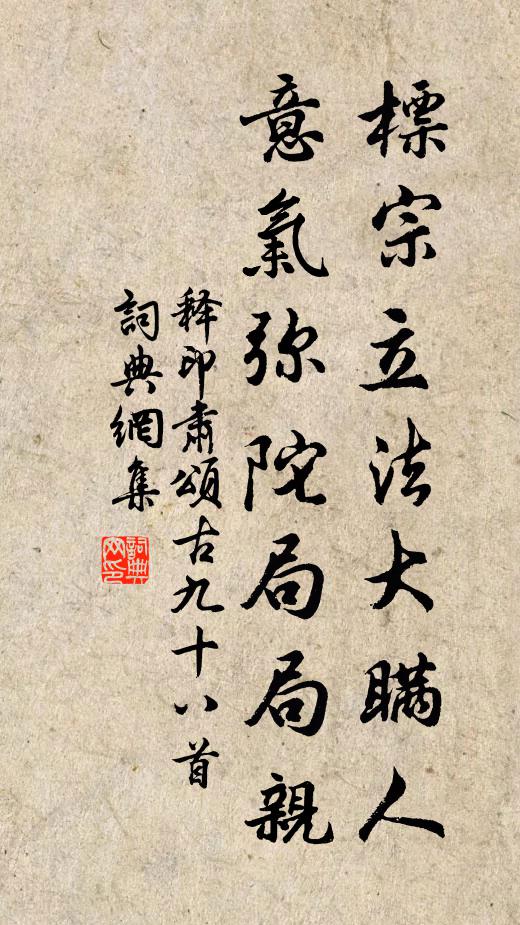 標宗立法大瞞人
意氣弥陀局局親
释印肅頌古九十八首
詞典網集
詞典
网印